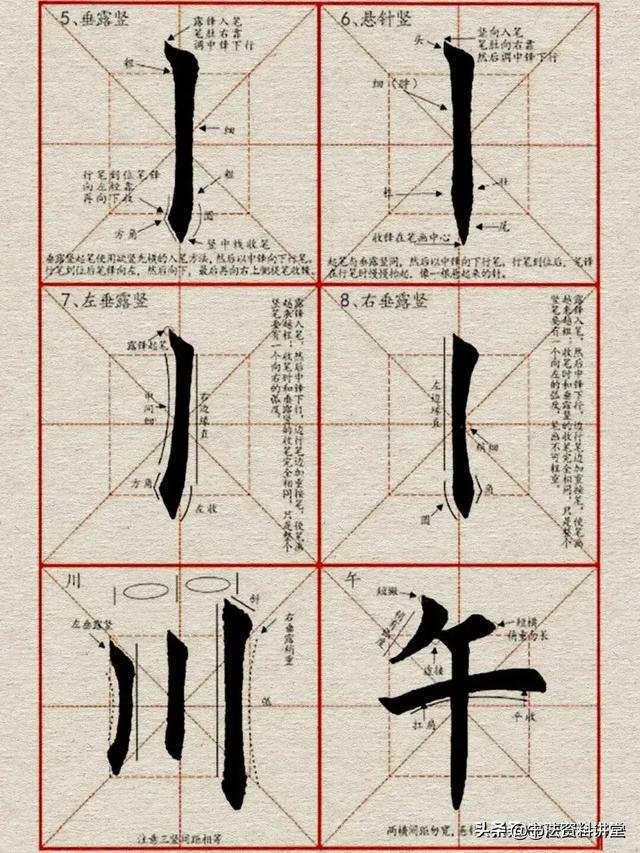 5、垂露竖
露锋入笔
笔肚右靠
调中锋下行
粗
细
行笔到位笔锋
向左轻靠
再向下收
粗
圆
方角
竖中线收笔
垂露竖起笔使用欲竖先横的入笔方法,然后以中锋向下行笔。
行笔到位后笔锋向左,然后向下,最后再向右上侧提笔收锋。
6、悬针竖
头
竖向入笔
笔肚向右靠
然后调中锋下行
细(脖)
肚
尾
收锋在笔画中心
起笔与垂露竖同,然后以中锋向下行笔,行笔到位后,笔锋
在行笔时慢慢抬起,像一根悬起来的针。
7、左垂露竖
露锋起笔
中间细
右边缘直
方角
左收
露锋入笔,然后中锋下行,边行笔边加重按笔,使笔画
越来越粗;收笔时和垂露竖的收笔完全相同,只是整个
竖笔要有一个向右的弧度。
8、右垂露竖
左边缘直
稍细
角
圆
露锋入笔,然后中锋下行,边行笔边加重按笔,使笔画
越来越粗;收笔时和垂露竖的收笔完全相同,只是整个
竖笔要有一个向左的弧度,笔画不可粗重。
川
斜
左垂露竖
右垂露稍重
弧
川
注意三竖间距相等
午
短撇
一短横
稍重向长
连接
扛肩
平收
午
两横间距勿宽,悬针
头条 @书法资料讲堂